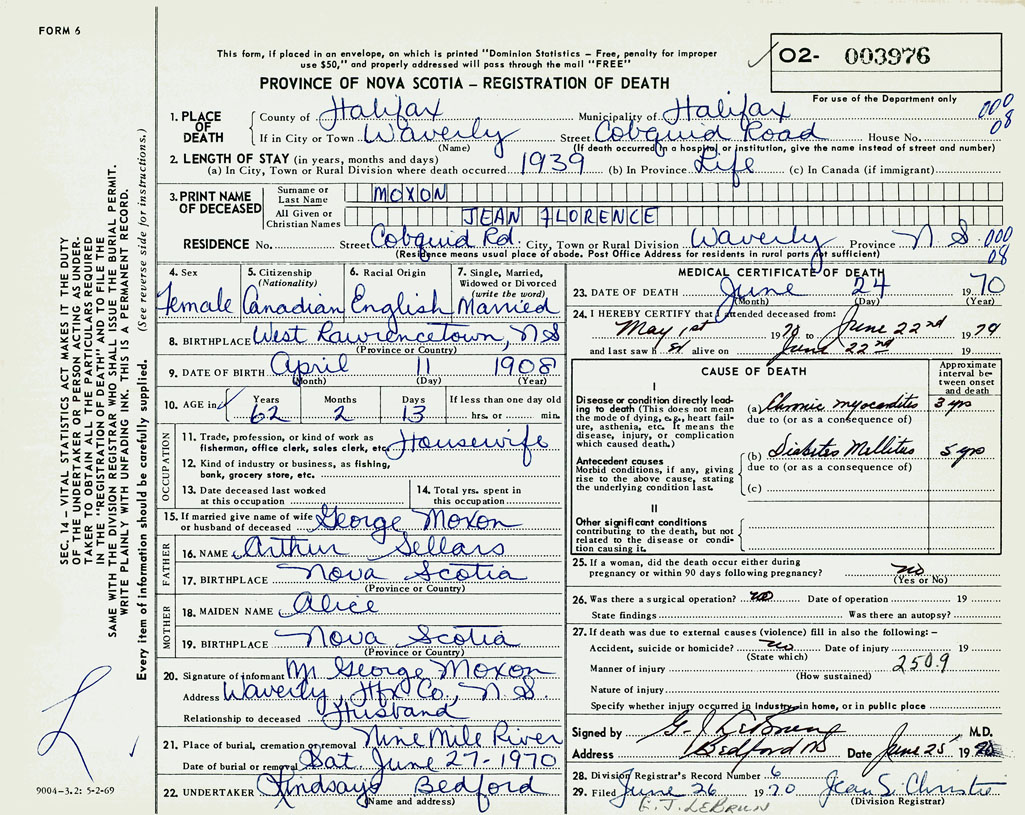 FORM 6
This form, if placed in an envelope, on which is printed "Dominion Statistics – Free, penalty for improper
use $50," and properly addressed will pass through the mail "FREE"
O2- 003976
PROVINCE OF NOVA SCOTIA – REGISTRATION OF DEATH
For use of the Department only
1. PLACE OF DEATH
County of Halifax Municipality of Halifax 000
08
If in City or Town Waverly Street Cobquid Road House No.
(Name) (If death occurred in a hospital or institution, give the name instead of street and number)
2. LENGTH OF STAY (in years, months and days)
(a) In City, Town or Rural Division where death occurred 1939 (b) In Province Life (c) In Canada (if immigrant)
3. PRINT NAME OF DECEASED
Surname or Last Name MOXON
All Given or Christian Names JEAN FLORENCE
RESIDENCE No. Street Cobquid Rd. City, Town or Rural Division Waverly Province N S. 000
(Residence means usual place of abode. Post Office Address for residents in rural parts not sufficient) 08
4. Sex
Female
5. Citizenship
(Nationality)
Canadian
6. Racial Origin
English
7. Single, Married,
Widowed or Divorced
(write the word)
Married
8. BIRTHPLACE West Lawrencetown, N S
(Province or Country)
9. DATE OF BIRTH April 11 1908
(Month) (Day) (Year)
10. AGE in Years Months Days If less than one day old
62 2 13 hrs. or min.
OCCUPATION
11. Trade, profession, or kind of work as
fisherman, office clerk, sales clerk, etc. Housewife
12. Kind of industry or business, as fishing,
bank, grocery store, etc.
13. Date deceased last worked
at this occupation
14. Total yrs. spent in
this occupation
15. If married give name of wife
or husband of deceased George Moxon
FATHER
16. NAME Arthur Sellars
17. BIRTHPLACE Nova Scotia
(Province or Country)
MOTHER
18. MAIDEN NAME Alice
19. BIRTHPLACE Nova Scotia
(Province or Country)
20. Signature of informant Mr George Moxon
Address Waverly, Hfx Co., N. S.
Relationship to deceased Husband
21. Place of burial, cremation or removal Nine Mile River
Date of burial or removal Sat. June 27-1970
22. UNDERTAKER Lindsays Bedford
(Name and address)
MEDICAL CERTIFICATE OF DEATH
23. DATE OF DEATH June 24 1970
(Month) (Day) (Year)
24. I HEREBY CERTIFY that I attended deceased from:
May 1st 1970 to June 22nd 1970
and last saw her alive on June 22nd 19
CAUSE OF DEATH
Approximate
interval be-
tween onset
and death
I
Disease or condition directly lead-
ing to death (This does not mean
the mode of dying, e.g., heart fail-
ure, asthenia, etc. It means the
disease, injury, or complication
which caused death.)
(a) Chronic myocarditis 3 yrs
due to (or as a consequence of)
Antecedent causes
Morbid conditions, if any, giving
rise to the above cause, stating
the underlying condition last.
(b) Diabetes Mellitus 5 yrs
due to (or as a consequence of)
(c)
II
Other significant conditions
contributing to the death, but not
related to the disease or condi-
tion causing it.
25. If a woman, did the death occur either during
pregnancy or within 90 days following pregnancy? no
(Yes or No)
26. Was there a surgical operation? no Date of operation 19
State findings Was there an autopsy?
27. If death was due to external causes (violence) fill in also the following:–
Accident, suicide or homicide? no Date of injury 19
(State which)
Manner of injury 250.9
(How sustained)
Nature of injury
Specify whether injury occurred in industry, in home, or in public place
Signed by G. J. LeBrun M.D.
Address Bedford NS Date June 25 1970
28. Division Registrar's Record Number 6
29. Filed June 26 1970 Jean S. Christie
(Division Registrar)
E. J. LEBRUN
SEC. 14 – VITAL STATISTICS ACT MAKES IT THE DUTY
OF THE UNDERTAKER OR PERSON ACTING AS UNDER-
TAKER TO OBTAIN ALL THE PARTICULARS REQUIRED
IN THE "REGISTRATION OF DEATH" AND TO FILE THE
SAME WITH THE DIVISION REGISTRAR WHO SHALL ISSUE THE BURIAL PERMIT.
WRITE PLAINLY WITH UNFADING INK. THIS IS A PERMANENT RECORD.
Every item of information should be carefully supplied. (See reverse side for instructions.)
9004-3.2: 5-2-69